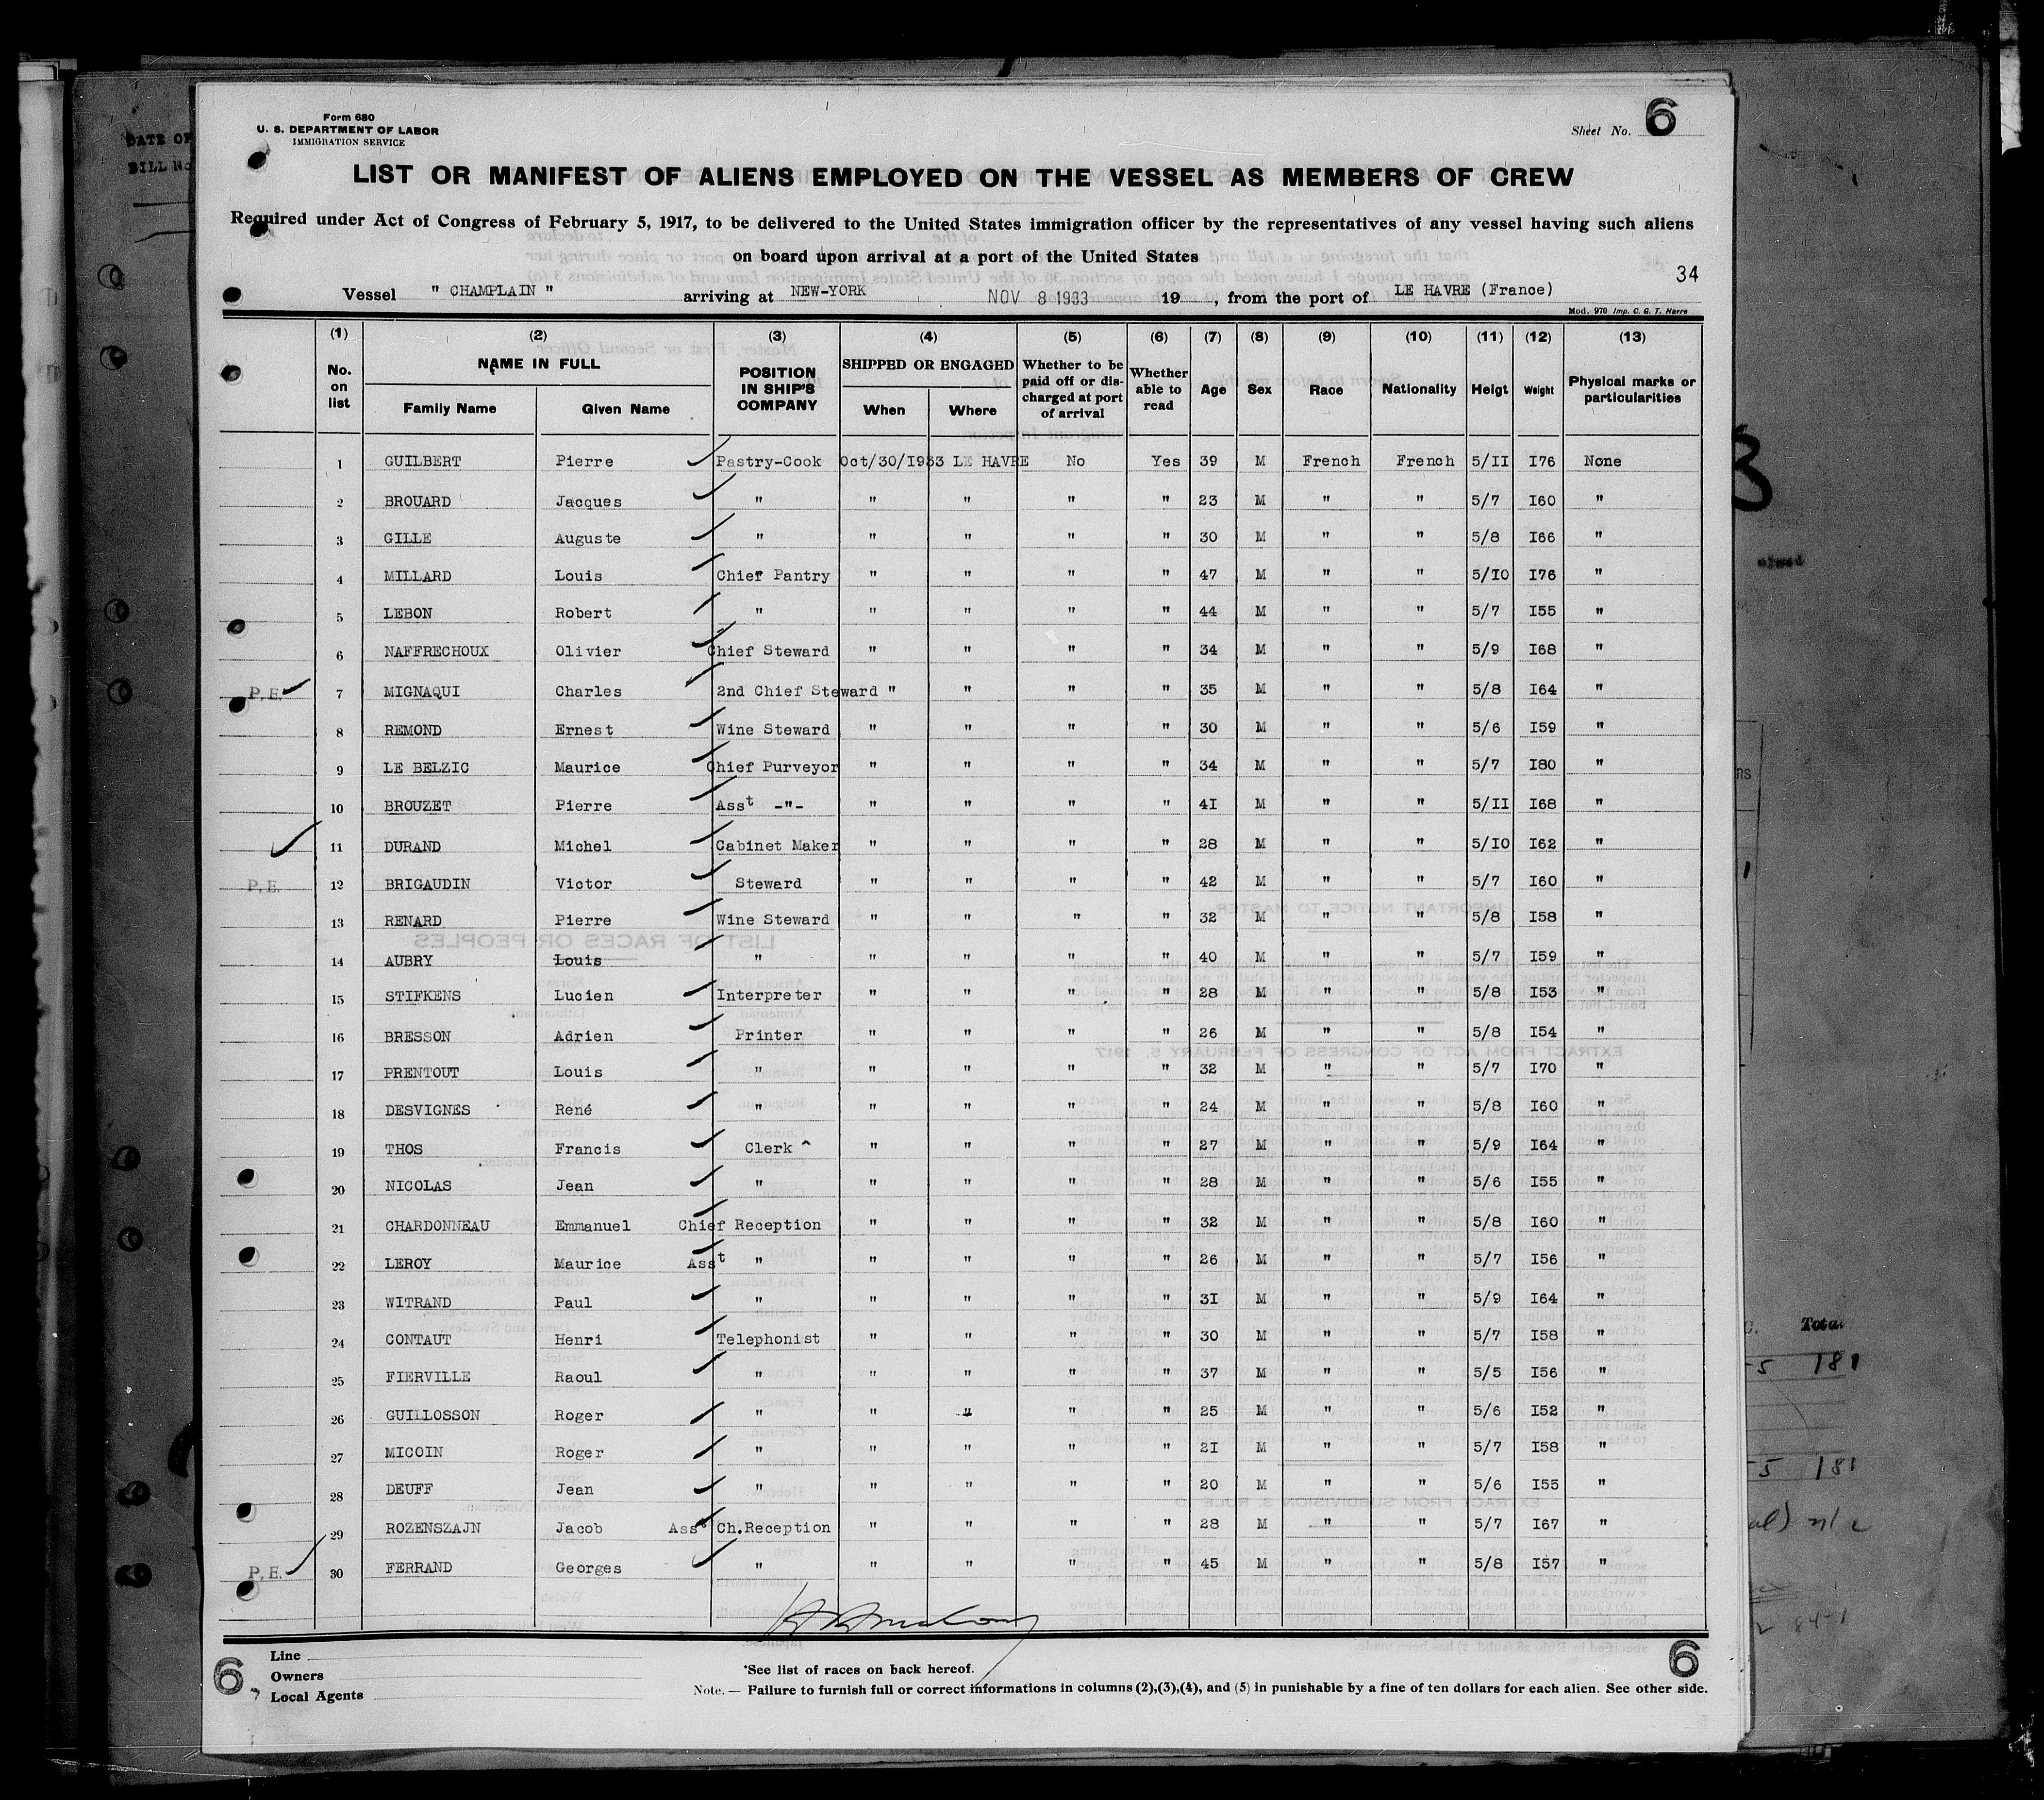 Form 680
U. S. DEPARTMENT OF LABOR
IMMIGRATION SERVICE
Sheet No. 6
LIST OR MANIFEST OF ALIENS EMPLOYED ON THE VESSEL AS MEMBERS OF CREW
Required under Act of Congress of February 5, 1917, to be delivered to the United States immigration officer by the representatives of any vessel having such aliens
on board upon arrival at a port of the United States
34
Vessel " CHAMPLAIN " arriving at NEW-YORK NOV 8 1933 19 , from the port of LE HAVRE (France)
Mod. 970 Imp. C. G. T. Havre
(1) (2) (3) (4) (5) (6) (7) (8) (9) (10) (11) (12) (13)
No. on list NAME IN FULL Family Name Given Name POSITION IN SHIP'S COMPANY SHIPPED OR ENGAGED When Where Whether to be paid off or dis-charged at port of arrival Whether able to read Age Sex Race Nationality Heigt Weight Physical marks or particularities
1 GUILBERT Pierre Pastry-Cook Oct/30/I933 LE HAVRE No Yes 39 M French French 5/II I76 None
2 BROUARD Jacques " " " " " 23 M " " 5/7 I60 "
3 GILLE Auguste " " " " " 30 M " " 5/8 I66 "
4 MILLARD Louis Chief Pantry " " " " 47 M " " 5/I0 I76 "
5 LEBON Robert " " " " " 44 M " " 5/7 I55 "
6 NAFFRECHOUX Olivier Chief Steward " " " " 34 M " " 5/9 I68 "
P.E. 7 MIGNAQUI Charles 2nd Chief Steward " " " " 35 M " " 5/8 I64 "
8 REMOND Ernest Wine Steward " " " " 30 M " " 5/6 I59 "
9 LE BELZIC Maurice Chief Purveyor " " " " 34 M " " 5/7 I80 "
10 BROUZET Pierre Asst -"- " " " " 4I M " " 5/II I68 "
11 DURAND Michel Cabinet Maker " " " " 28 M " " 5/I0 I62 "
P.E. 12 BRIGAUDIN Victor Steward " " " " 42 M " " 5/7 I60 "
13 RENARD Pierre Wine Steward " " " " 32 M " " 5/8 I58 "
14 AUBRY Louis " " " " " 40 M " " 5/7 I59 "
15 STIFKENS Lucien Interpreter " " " " 28 M " " 5/8 I53 "
16 BRESSON Adrien Printer " " " " 26 M " " 5/8 I54 "
17 PRENTOUT Louis " " " " " 32 M " " 5/7 I70 "
18 DESVIGNES René " " " " " 24 M " " 5/8 I60 "
19 THOS Francis Clerk ^ " " " " 27 M " " 5/9 I64 "
20 NICOLAS Jean " " " " " 28 M " " 5/6 I55 "
21 CHARDONNEAU Emmanuel Chief Reception " " " " 32 M " " 5/8 I60 "
22 LEROY Maurice Asst " " " " " 26 M " " 5/7 I56 "
23 WITRAND Paul " " " " " 3I M " " 5/9 I64 "
24 CONTAUT Henri Telephonist " " " " 30 M " " 5/7 I58 "
25 FIERVILLE Raoul " " " " " 37 M " " 5/5 I56 "
26 GUILLOSSON Roger " " " " " 25 M " " 5/6 I52 "
27 MICOIN Roger " " " " " 2I M " " 5/7 I58 "
28 DEUFF Jean " " " " " 20 M " " 5/6 I55 "
29 ROZENSZAJN Jacob Asst Ch.Reception " " " " 28 M " " 5/7 I67 "
P.E. 30 FERRAND Georges " " " " " 45 M " " 5/8 I57 "
Line
Owners
Local Agents
*See list of races on back hereof.
Note. — Failure to furnish full or correct informations in columns (2),(3),(4), and (5) in punishable by a fine of ten dollars for each alien. See other side.
6
6
DATE OF
BILL No
Total
181
181